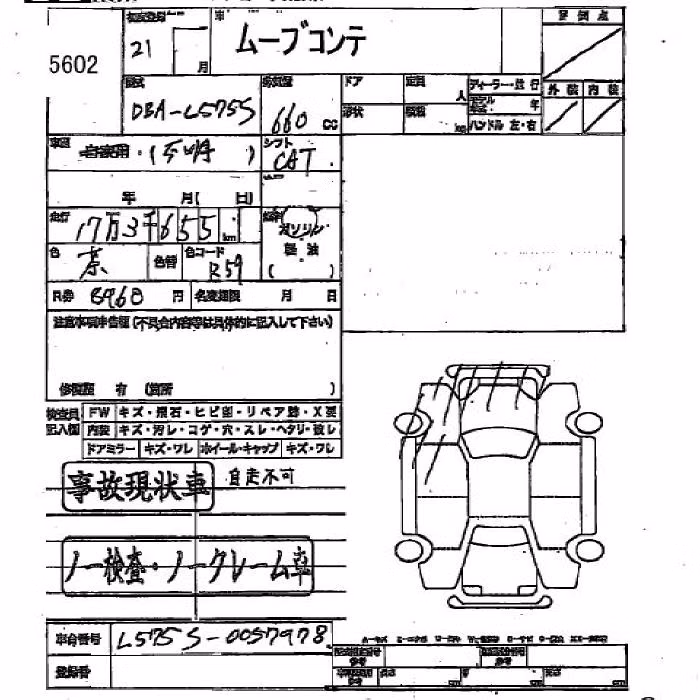 初度登録
21 月
ムーブコンテ
5602
型式
DBA-L575S
排気量
660 cc
ドア
定員
人
ディーラー・並行
年
形状
km
ハンドル 左・右
評価点
外装 内装
車歴
自家用・(不明 )
シフト
CAT
年 月( 日)
走行
17万3千655 km
ガソリン
軽油
( )
色
茶
色替
色コード
R59
R券 8960 円 名変期限 月 日
注意事項申告欄(不具合内容等は具体的に記入して下さい)
修復歴 有 (箇所 )
検査員記入欄
FW キズ・飛石・ヒビ割・リペア跡・X要
内装 キズ・汚レ・コゲ・穴・スレ・ヘタリ・破レ
ドアミラー キズ・ワレ ホイール・キャップ キズ・ワレ
事故現状車 自走不可
ノー検査・ノークレーム車
車台番号 L575S-0057978
登録番